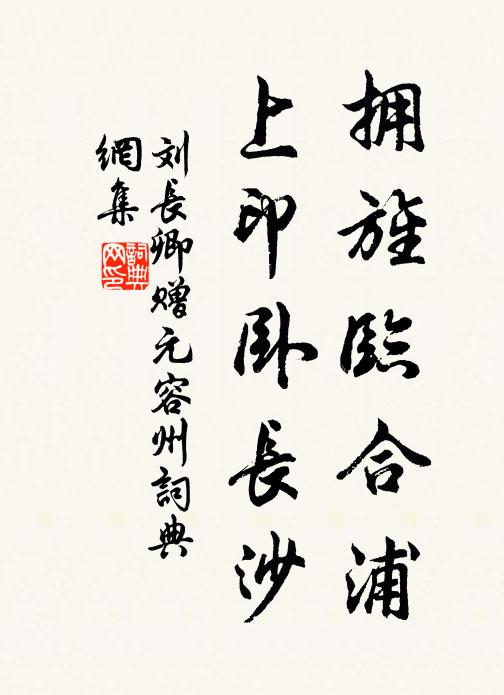 拥旌臨合浦
上印卧長沙
刘長卿赠元容州詞典
網集
詞典
网印